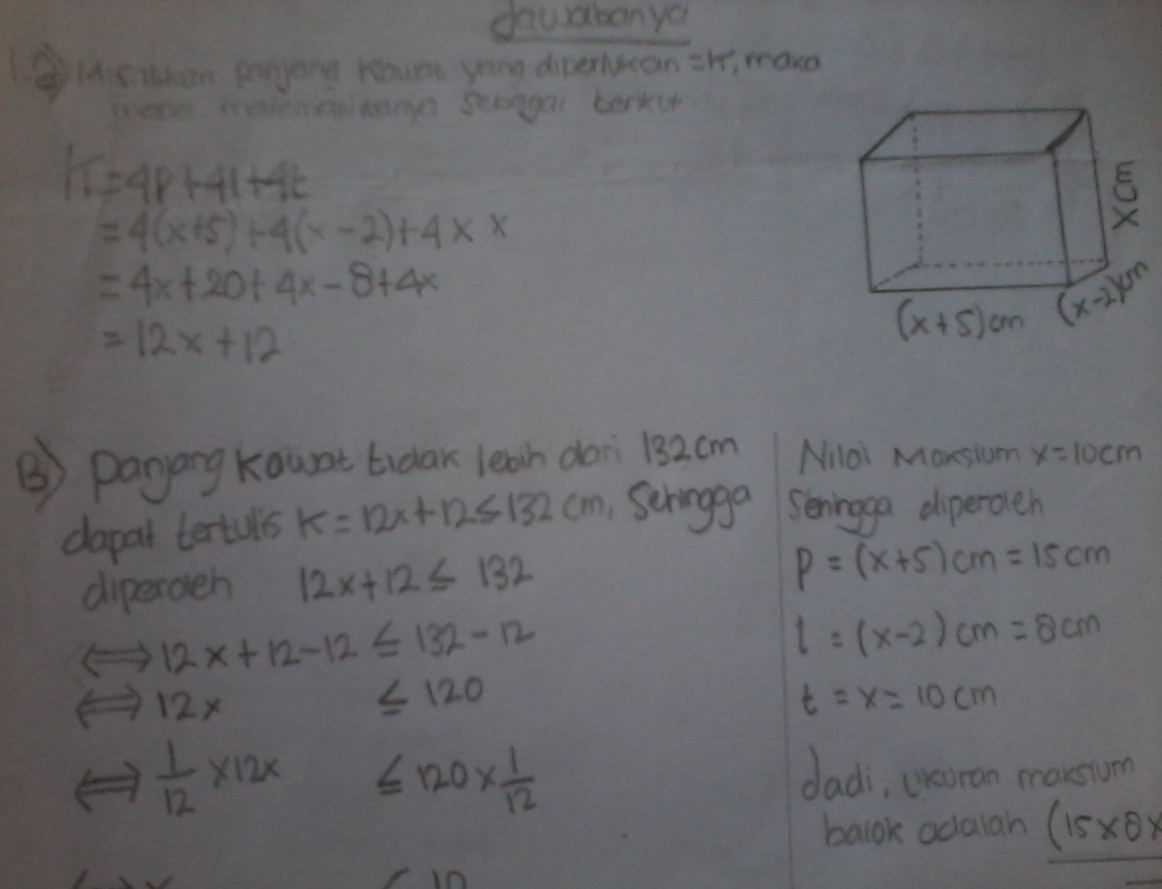 Jawabanya
1.a) Misalkan panjang kawat yang diperlukan = K, maka
sebagai berikut
K = 4p + 4l + 4t
= 4(x+5) + 4(x-2) + 4 x x
= 4x + 20 + 4x - 8 + 4x
= 12x + 12
x cm
(x+5) cm
(x-2) cm
B) Panjang kawat tidak lebih dari 132 cm
dapat tertulis K = 12x + 12 ≤ 132 cm, Sehingga
diperoleh 12x + 12 ≤ 132
⟺ 12x + 12 - 12 ≤ 132 - 12
⟺ 12x ≤ 120
⟺ 1/12 x 12x ≤ 120 x 1/12
Nilai Maksium x = 10 cm
Sehingga diperoleh
p = (x+5) cm = 15 cm
l = (x-2) cm = 8 cm
t = x = 10 cm
Jadi, ukuran maksium
balok adalah (15 x 8 x